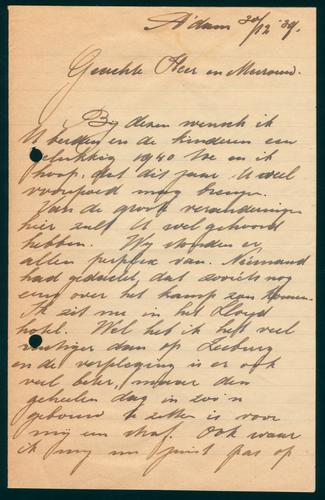 A'dam 30/12 '39.
Geachte Heer en Mevrouw.
Bij dezen wensch ik
U beiden en de kinderen een
gelukkig 1940 toe en ik
hoop, dat dit jaar U veel
voorspoed mag brengen.
Van de groote veranderingen
hier zult U wel gehoord
hebben. Wij stonden er
allen perplex van. Niemand
had gedacht, dat zooiets nog
eens over het kamp zou komen.
Ik zit nu in het Lloyd
hotel. Wel heb ik het veel
rustiger dan op Zeeburg
en de verpleging is er ook
veel beter, maar den
geheelen dag in zoo'n
gebouw te zitten is voor
mij een straf. Ook waar
ik mij nu juist pas op